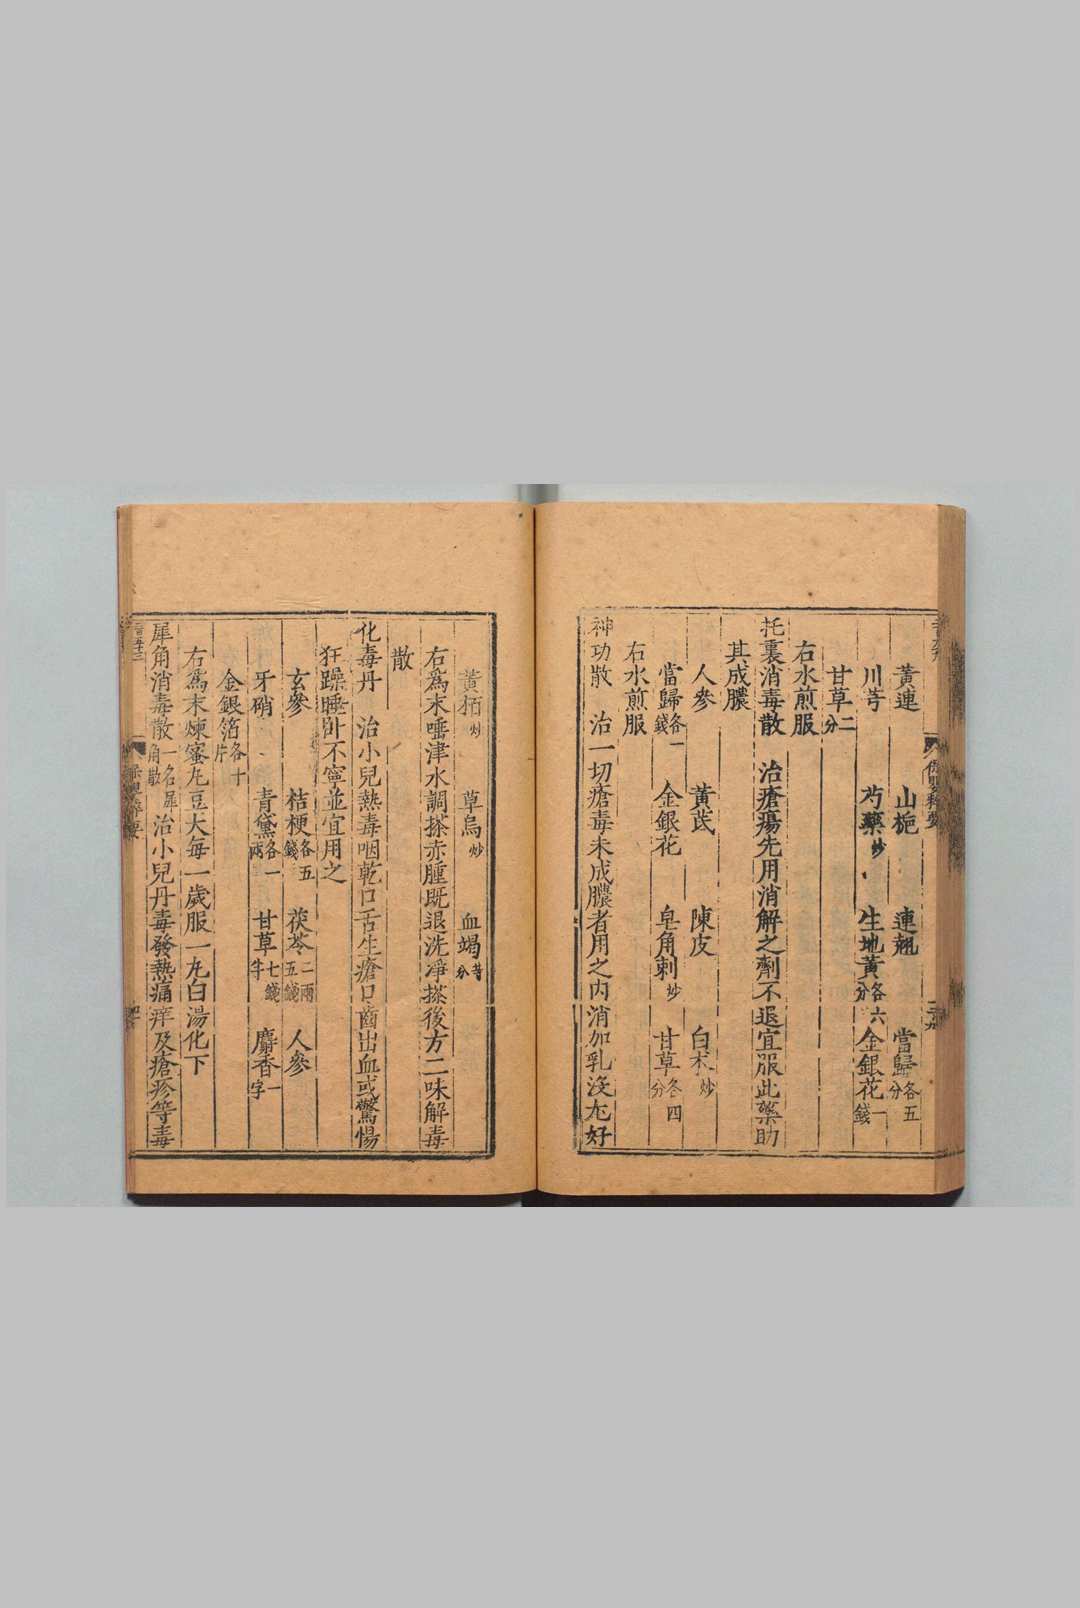 黃連 山梔 連翹 當歸各五分
川芎 芍藥炒 生地黃各六分 金銀花一錢
甘草二分
右水煎服
托裏消毒散 治瘡瘍先用消解之劑不退宜服此藥助
其成膿
人參 黃芪 陳皮 白朮炒
當歸各一錢 金銀花 皂角刺炒 甘草各四分
右水煎服
神功散 治一切瘡毒未成膿者用之內消加乳沒尤好
黃栢炒 草烏炒 血竭
右爲末唾津水調搽赤腫旣退洗淨搽後方二味解毒
散
化毒丹 治小兒熱毒咽乾口舌生瘡口齒出血或驚惕
狂躁睡卧不寧並宜用之
玄參 桔梗各五錢 茯苓二兩五錢 人參
牙硝 青黛各一兩 甘草七錢半 麝香一字
金銀箔各十片
右爲末煉蜜丸豆大每一歲服一丸白湯化下
犀角消毒散一名犀角散 治小兒丹毒發熱痛痒及瘡疹等毒